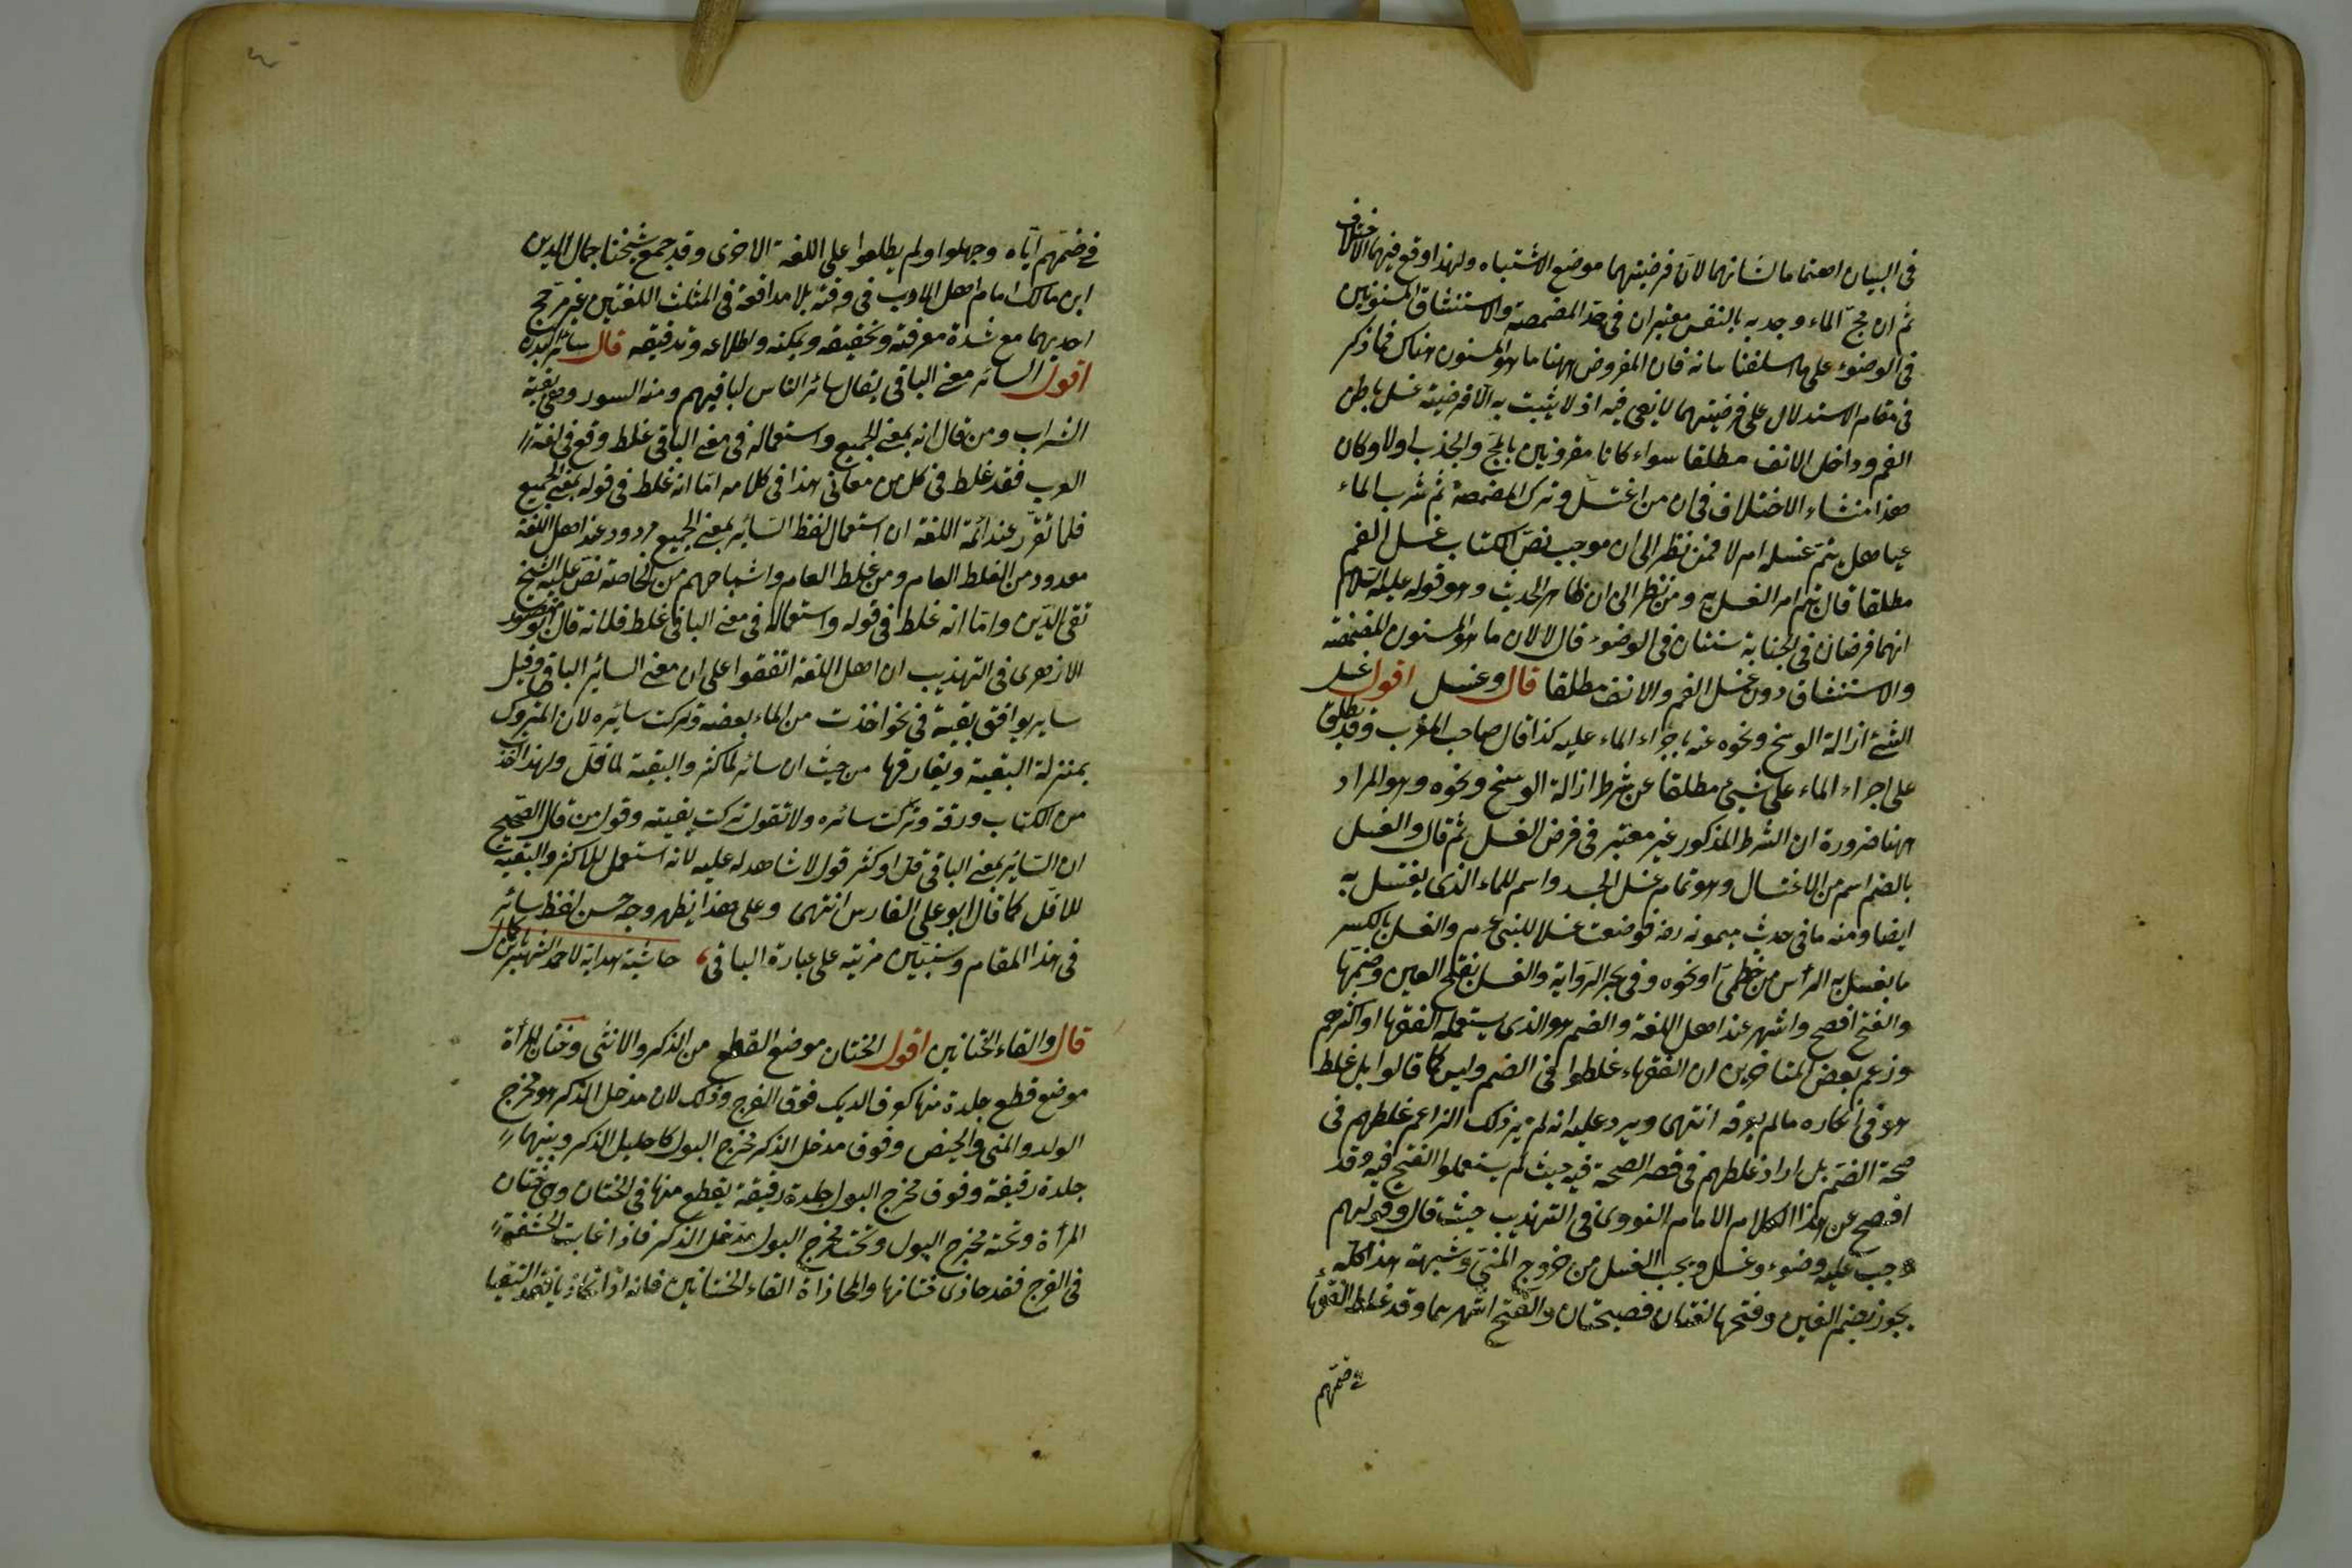 في البيان اهتماما لشانهما لان فرضيتهما موضع الاشتباه ولهذا وقع فيهما الاختلاف
ثم ان مج الماء وجذبه بالنفس معتبران في حد المضمضة والاستنشاق المسنونين
في الوضوء على ما اسلفنا بيانه فان المفروض ههنا ما هو المسنون هناك فما ذكر
في مقام الاستدلال على فرضيتهما لا يفي فيه اذ لا يثبت به الا فرضية غسل باطن
الفم وداخل الانف مطلقا سواء كانا مقرونين بالمج والجذب اولا وكان
هذا منشاء الاختلاف في ان من اغتسل وترك المضمضة ثم شرب الماء
عبا هل يتم غسله ام لا فمن نظر الى ان موجب نص الكتاب غسل الفم
مطلقا قال يتم امر الغسل به ومن نظر الى ان ظاهر الحديث وهو قوله عليه السلام
انهما فرضان في الجنابة سنتان في الوضوء قال لا لان ما هو المسنون المضمضة
والاستنشاق دون غسل الفم والانف مطلقا قال وغسل اقول غسل
الشئ ازالة الوسخ ونحوه عنه باجراء الماء عليه كذا قال صاحب المغرب وقد يطلق
على اجراء الماء على شيئ مطلقا عن شرط ازالة الوسخ ونحوه وهو المراد
ههنا ضرورة ان الشرط المذكور غير معتبر في فرض الغسل ثم قال والغسل
بالضم اسم من الاغتسال وهو تمام غسل الجسد واسم للماء الذى يغتسل به
ايضا ومنه ما في حديث ميمونه رضه فوضعت غسلا للنبي عم والغسل بالكسر
ما يغسل به الرأس من خطمي او نحوه وفي بحر الرواية والغسل بفتح الغين وضمها
والفتح افصح واشهر عند اهل اللغة والضم هو الذى يستعمله الفقهاء او اكثرهم
وزعم بعض المتاخرين ان الفقهاء غلطوا في الضم وليس كما قالوا بل غلط
هو في انكاره مالم يعرفه انتهى ويرد عليه انه لم يرد ذلك الزاعم غلطهم في
صحة الضم بل اراد غلطهم في قصر الصحة فيه حيث لم يستعملوا الفتح فيه وقد
افصح عن هذا الكلام الامام النووى في التهذيب حيث قال وقولهم
وجب عليه وضوء وغسل ويجب الغسل من خروج المني وشبهه هذا كله
يجوز بضم الغين وفتحها لغتان فصيحتان والفتح اشهرهما وقد غلط الفقهاء
في ضمهم
في ضمهم اياه وجهلوا ولم يطلعوا على اللغة الاخرى وقد جمع شيخنا جمال الدين
ابن مالك امام اهل الادب في وقته بلا مدافعة في المثلث اللغتين غير مرجح
احديهما مع شدة معرفته وتحقيقه وتمكنه واطلاعه وتدقيقه قال سائر البدن
اقول السائر معنى الباقي يقال سائر الناس لباقيهم ومنه السور وهي بقية
الشراب ومن قال انه بمعنى الجميع واستعماله في معنى الباقي غلط وقع في لغة
العرب فقد غلط في كل من معاني هذا في كلامه اما انه غلط في قوله بمعنى الجميع
فلما تقرر عند ائمة اللغة ان استعمال لفظ السائر بمعنى الجميع مردود عند اهل اللغة
معدود من الغلط العام ومن غلط العام واشباههم من الخاصة نص عليه الشيخ
تقي الدين واما انه غلط في قوله واستعماله في معنى الباقي غلط فلانه قال ابو منصور
الازهرى في التهذيب ان اهل اللغة اتفقوا على ان معنى السائر الباقي وقيل
ساير يوافق بقية في نحو اخذت من الماء بعضه وتركت سائره لان المتروك
بمنزلة البقية ويفارقها من حيث ان سائر لما كثر والبقية لما قل ولهذا اخذت
من الكتاب ورقة وتركت سائره ولا تقول تركت بقيته وقول من قال الصحيح
ان السائر بمعنى الباقي قل او كثر قول لا شاهد له عليه لانه استعمل للاكثر والبقية
للاقل كما قال ابو على الفارس انتهى وعلى هذا يظهر وجه حسن لفظ سائر
في هذا المقام وسنبين مزيته على عبارة الباقي حاشية هداية لاحمد الشهير بابن كمال
قال والتقاء الختانين اقول الختان موضع القطع من الذكر والانثى وختان المرأة
موضع قطع جلدة منها كعرف الديك فوق الفرج وذلك لان مدخل الذكر هو مخرج
الولد والمني والحيض وفوق مدخل الذكر مخرج البول كاحليل الذكر وبينهما
جلدة رقيقة وفوق مخرج البول جلدة رقيقة يقطع منها في الختان وهي ختان
المرأة وتحته مخرج البول وتحت مخرج البول مدخل الذكر فاذا غابت الحشفة
في الفرج فقد حاذى ختانها والمحاذاة التقاء الختانين فانه اذا تحاذيا فقد التقيا